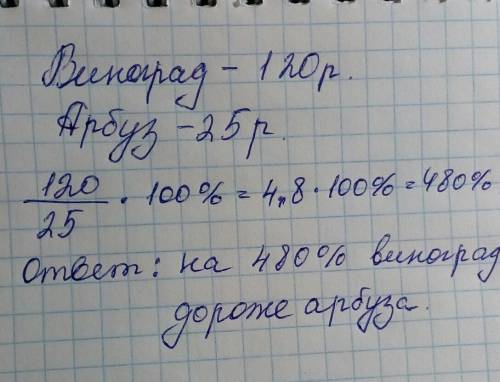 Виноград - 120р.
Арбуз - 25р.
120/25 · 100% = 4,8 · 100% = 480%
Ответ: на 480% виноград
дороже арбуза.